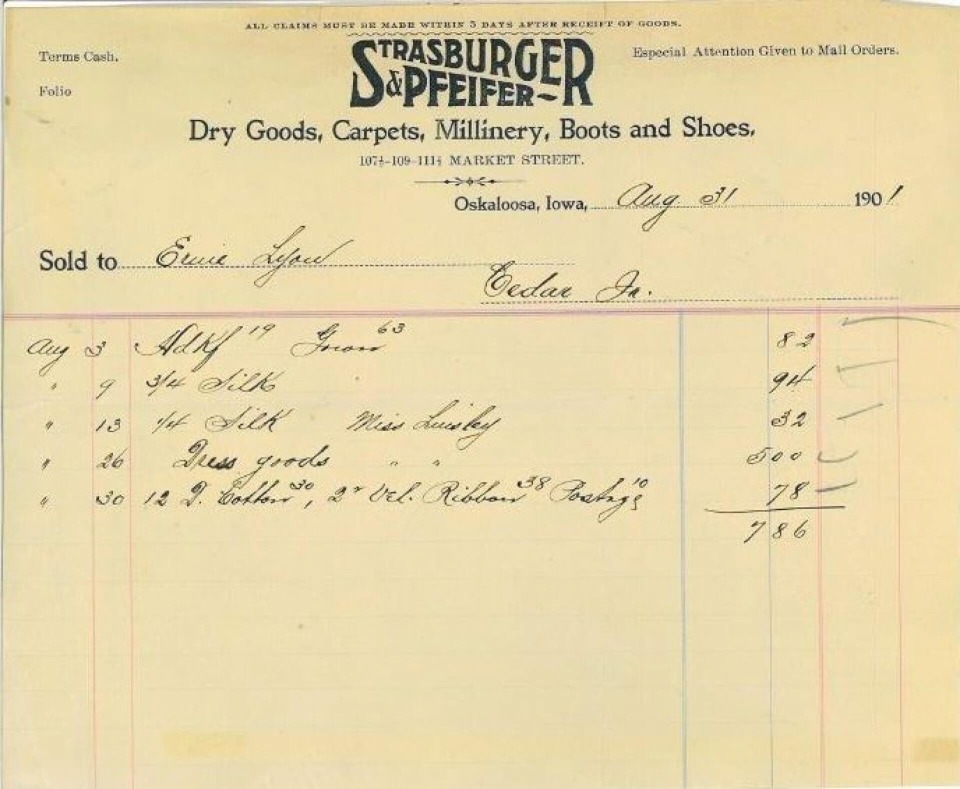 ALL CLAIMS MUST BE MADE WITHIN 5 DAYS AFTER RECEIPT OF GOODS.
Terms Cash.
STRASBURGER & PFEIFER
Especial Attention Given to Mail Orders.
Folio
Dry Goods, Carpets, Millinery, Boots and Shoes.
107½-109-111½ MARKET STREET.
Oskaloosa, Iowa, Aug 31 1901
Sold to Ernie Lyon
Cedar Ia.
Aug 3 Hdkf 19 63 82
" 9 3/4 Silk 94
" 13 1/4 Silk Miss Linsley 32
" 26 Dress goods " " 500
" 30 12 D. Cotton 30, 2 Vel. Ribbon 38 Postage 10 78
786